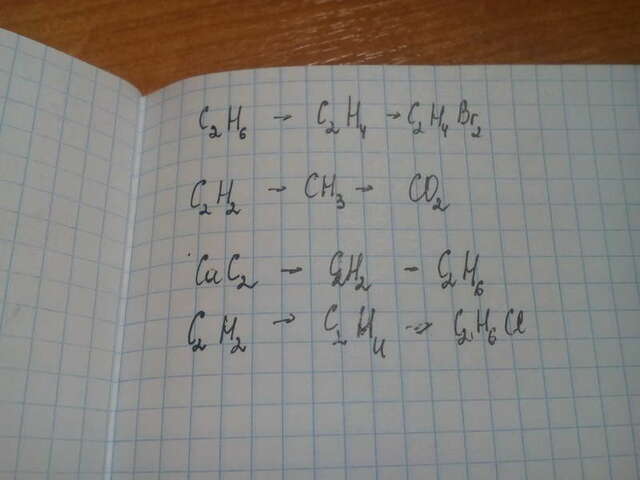 C₂H₆ → C₂H₄ → C₂H₄Br₂
C₂H₂ → CH₃ → CO₂
CaC₂ – C₂H₂ – C₂H₆
C₂H₂ → C₂H₄ → C₂H₆Cl